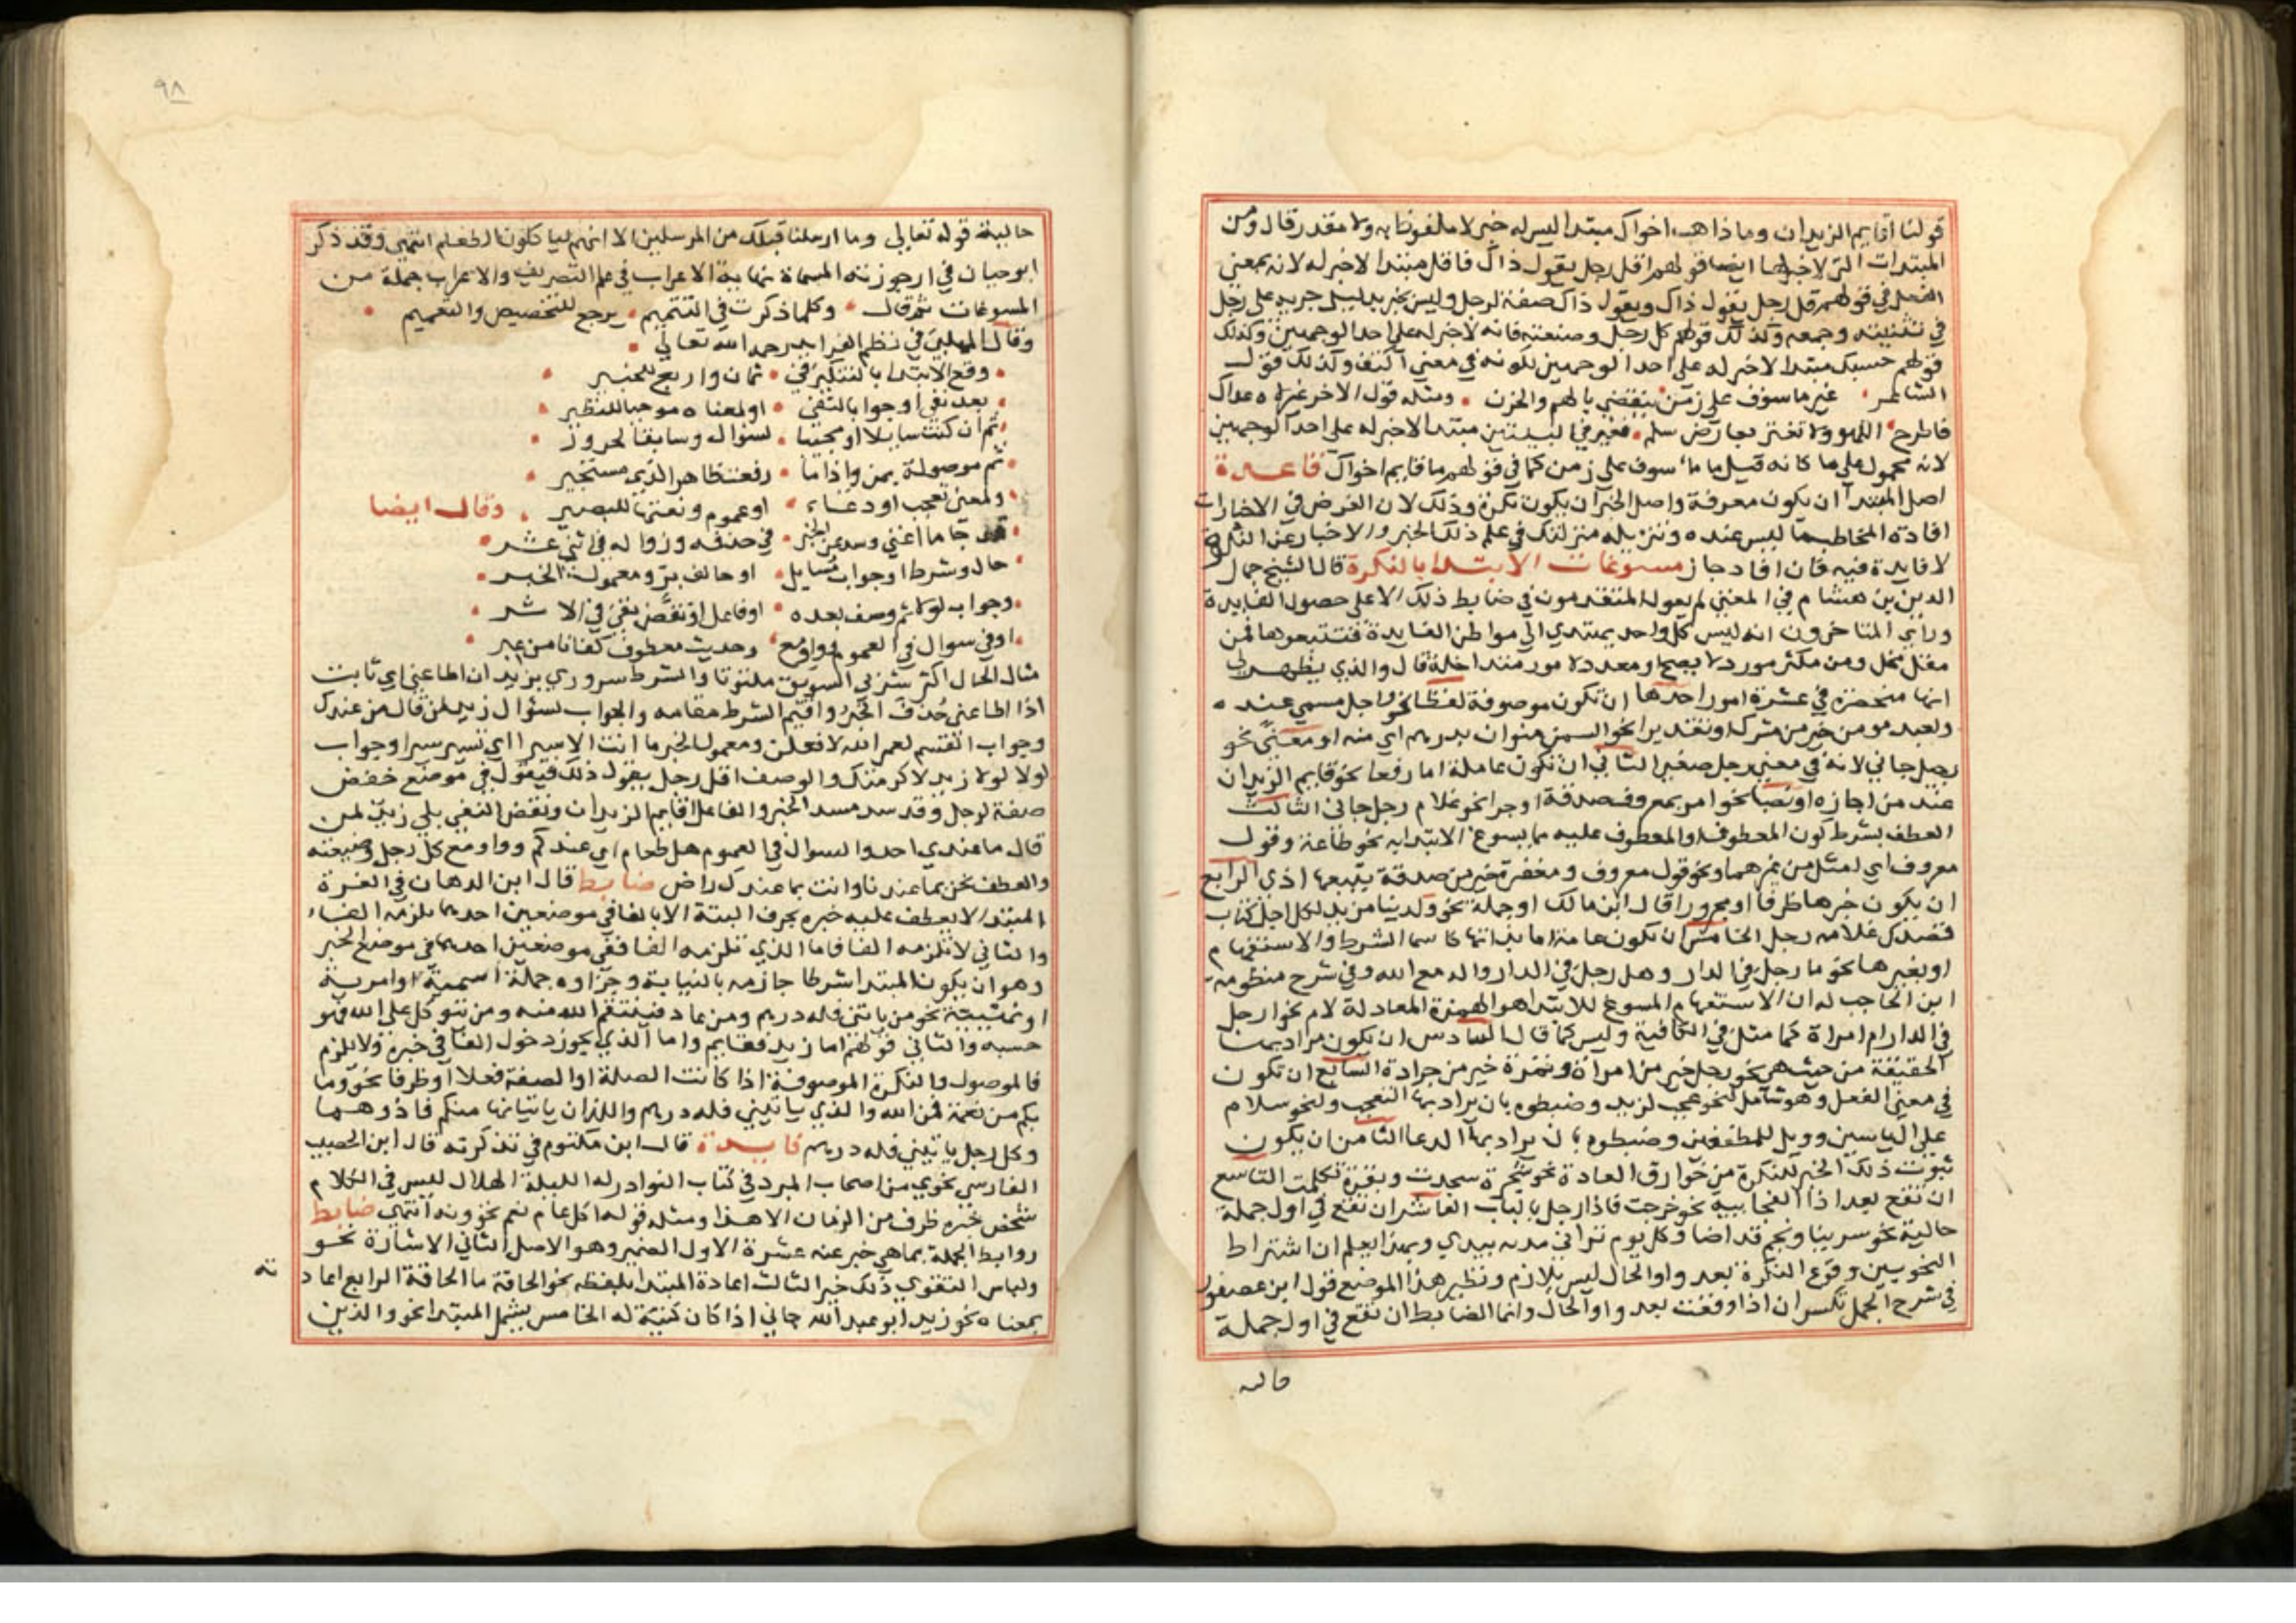 قولنا اقايم الزيدان وما ذاهب اخواك مبتدا ليس له خبر لا ملفوظا به ولا مقدر قال ومن
المبتدات التي لا خبر لها ايضا قولهم اقل رجل يقول ذاك فاقل مبتدا لا خبر له لانه بمعني
الفعل في قولهم قل رجل يقول ذاك ويقول ذاك صفة لرجل وليس بخبر بدليل جريه علي رجل
في تثنيته وجمعه وكذلك قولهم كل رجل وصنعته فانه لا خبر له علي احد الوجهين وكذلك
قولهم حسبك مبتدا لا خبر له علي احد الوجهين لكونه في معني اكتف وكذلك قول
الشاعر غير ماسوف علي زمن ينقضي بالهم والحزن ومثله قول الاخر غير لاه عداك
فاطرح اللهو ولا تغترر بعارض سلم فغير في البيتين مبتدا لا خبر له علي احد الوجهين
لانه محمول علي ما كانه قيل ما ماسوف علي زمن كما في قولهم ما قايم اخواك قاعدة
اصل المبتدا ان يكون معرفة واصل الخبر ان يكون نكرة وذلك لان الغرض في الاخبارات
افادة المخاطب ما ليس عنده وتنزيله منزلتك في علم ذلك الخبر والاخبار عن النكرة
لا فايدة فيه فان افاد جاز مسوغات الابتدا بالنكرة قال الشيخ جمال
الدين بن هشام في المغني لم يعول المتقدمون في ضابط ذلك الا علي حصول الفايدة
وراي المتاخرون انه ليس كل واحد يهتدي الي مواطن الفايدة فتتبعوها فمن
مقل مخل ومن مكثر مورد لا يصح او معدد لامور متداخلة قال والذي يظهر لي
انها منحصرة في عشرة امور احدها ان تكون موصوفة لفظا نحو واجل مسمي عنده
ولعبد مومن خير من مشرك او تقديرا نحو السمن منوان بدرهم اي منه او معني نحو
رجيل جاني لانه في معني رجل صغير الثاني ان تكون عاملة اما رفعا نحو قايم الزيدان
عند من اجازه او نصبا نحو امر بمعروف صدقة او جرا نحو غلام رجل جاني الثالث
العطف بشرط كون المعطوف او المعطوف عليه مما يسوغ الابتدا به نحو طاعة وقول
معروف اي امثل من غيرهما ونحو قول معروف ومغفرة خير من صدقة يتبعها اذي الرابع
ان يكون خبرها ظرفا او مجرورا قال ابن مالك او جملة نحو ولدينا مزيد لكل اجل كتاب
قصدك غلامه رجل الخامس ان تكون عامة اما بذاتها كاسما الشرط والاستفهام
او بغيرها نحو ما رجل في الدار وهل رجل في الدار واله مع الله وفي شرح منظومة
ابن الحاجب له ان الاستفهام المسوغ للابتدا هو الهمزة المعادلة لام نحو ارجل
في الدار ام امراة كما مثل في الكافية وليس كما قال السادس ان يكون مرادا بها
الحقيقة من حيث هي نحو رجل خير من امراة وتمرة خير من جرادة السابع ان تكون
في معني الفعل وهو شامل لنحو عجب لزيد وضبطوه بان يراد بها التعجب ولنحو سلام
علي الياسين وويل للمطففين وضبطوه بان يراد بها الدعا الثامن ان يكون
ثبوت ذلك الخبر للنكرة من خوارق العادة نحو شجرة سجدت وبقرة تكلمت التاسع
ان تقع بعد اذا الفجاييه نحو خرجت فاذا رجل بالباب العاشر ان تقع في اول جملة
حالية نحو سرينا ونجم قد اضا وكل يوم تراني مدية بيدي وبهذا يعلم ان اشتراط
النحويين وقوع النكرة بعد واو الحال ليس بلازم ونظير هذا الموضع قول ابن عصفور
في شرح الجمل تكسر ان اذا وقعت بعد واو الحال وانما الضابط ان تقع في اول جملة
حاليه
٩٨
حالية قوله تعالي وما ارسلنا قبلك من المرسلين الا انهم لياكلون الطعام انتهي وقد ذكر
ابو حيان في ارجوزته المسماة نهاية الاعراب في علم التصريف والاعراب جملة من
المسوغات ثم قال وكلما ذكرت في التتميم يرجع للتخصيص والتعميم
وقال المهلبي في نظم الفرايد رحمه الله تعالي
وقع الابتدا بالتنكير في ثمان واربع للخبير
بعد نفي او جوابا لنفي او لمعناه موجبا للنظير
ثم ان كنت سايلا او مجيبا لسوال وسابقا لحرور
ثم موصولة بمن واذا ما رفعت ظاهر الذي مستخير
ولمعني تعجب او دعاء او عموم ونعتها للبصير وقال ايضا
قد جا ما اغني وسد عن الخبر في حذفه وزواله في اثني عشر
حال وشرط او جواب مسايل او حالف بر ومعمول الخبر
وجواب لولا ثم وصف بعده او فاعل او نقض نفي في الاثر
او في سوال في العموم وواو مع وحديث معطوف كفانا من غبر
مثال الحال اكثر شربي السويق ملتوتا والشرط سروري بزيد ان اطاعني اي ثابت
اذا اطاعني حذف الخبر واقيم الشرط مقامه والجواب لسوال زيد لمن قال من عندك
وجواب القسم لعمر الله لافعلن ومعمول الخبر ما انت الا سيرا اي تسير سيرا وجواب
لولا لولا زيد لاكرمتك والوصف اقل رجل يقول ذلك فيقول في موضع خفض
صفة لرجل وقد سد مسد الخبر والفاعل اقايم الزيدان ونقض النفي بلي زيد لمن
قال ما عندي احد والسوال في العموم هل طعام اي عندكم وواو مع كل رجل وضيعته
والعطف نحن بما عندنا وانت بما عندك راض ضابط قال ابن الدهان في الغرة
المبتدا لا يعطف عليه خبره بحرف البتة الا بالفا في موضعين احدهما يلزمه الفاء
والثاني لا تلزمه الفا فاما الذي تلزمه الفا ففي موضعين احدهما في موضع الخبر
وهو ان يكون المبتدا شرطا جازمه بالنيابة وجزاوه جملة اسمية او امرية
او نهييجة نحو من ياتني فله درهم ومن عاد فينتقم الله منه ومن يتوكل علي الله فهو
حسبه والثاني قولهم اما زيد فقايم واما الذي يجوز دخول الفا في خبره ولا يلزم
فالموصول والنكرة الموصوفة اذا كانت الصلة او الصفة فعلا او ظرفا نحو وما
بكم من نعمة فمن الله والذي ياتيني فله درهم واللذان ياتيانها منكم فاذوهما
وكل رجل ياتيني فله درهم فايدة قال ابن مكتوم في تذكرته قال ابن الخصيب
الفارسي نحوي من اصحاب المبرد في كتاب النوادر له الليلة الهلال ليس في الكلام
شخص خبره ظرف من الزمان الا هذا ومثله قوله اكل عام نعم نحوونه انتهي ضابط
روابط الجملة بما هي خبر عنه عشرة الاول الضمير وهو الاصل الثاني الاشارة نحو
ولباس التقوي ذلك خير الثالث اعادة المبتدا بلفظه نحو الحاقة ما الحاقة الرابع اعاد
ته
بمعناه نحو زيد ابو عبد الله جاني اذا كان كنية له الخامس يشمل المبتدا نحو والذين